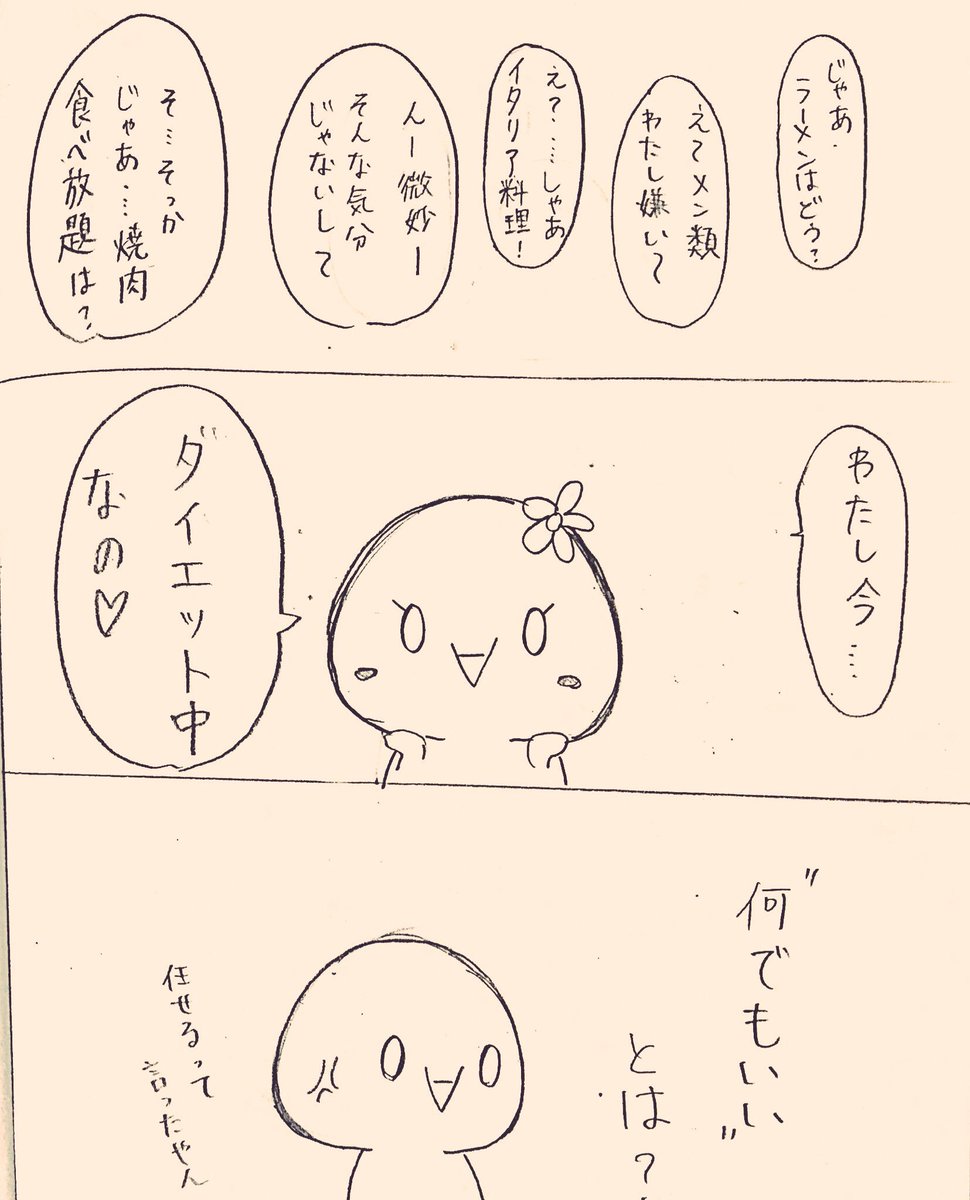 じゃあ
ラーメンはどう?
え〜メン類
わたし嫌い〜
え?……じゃあ
イタリア料理!
んー微妙ー
そんな気分
じゃないして
そ…そっか
じゃあ…焼肉
食べ放題は?
わたし今…
ダイエット中
なの♡
"何でもいい"
とは?
任せるって
言ったやん